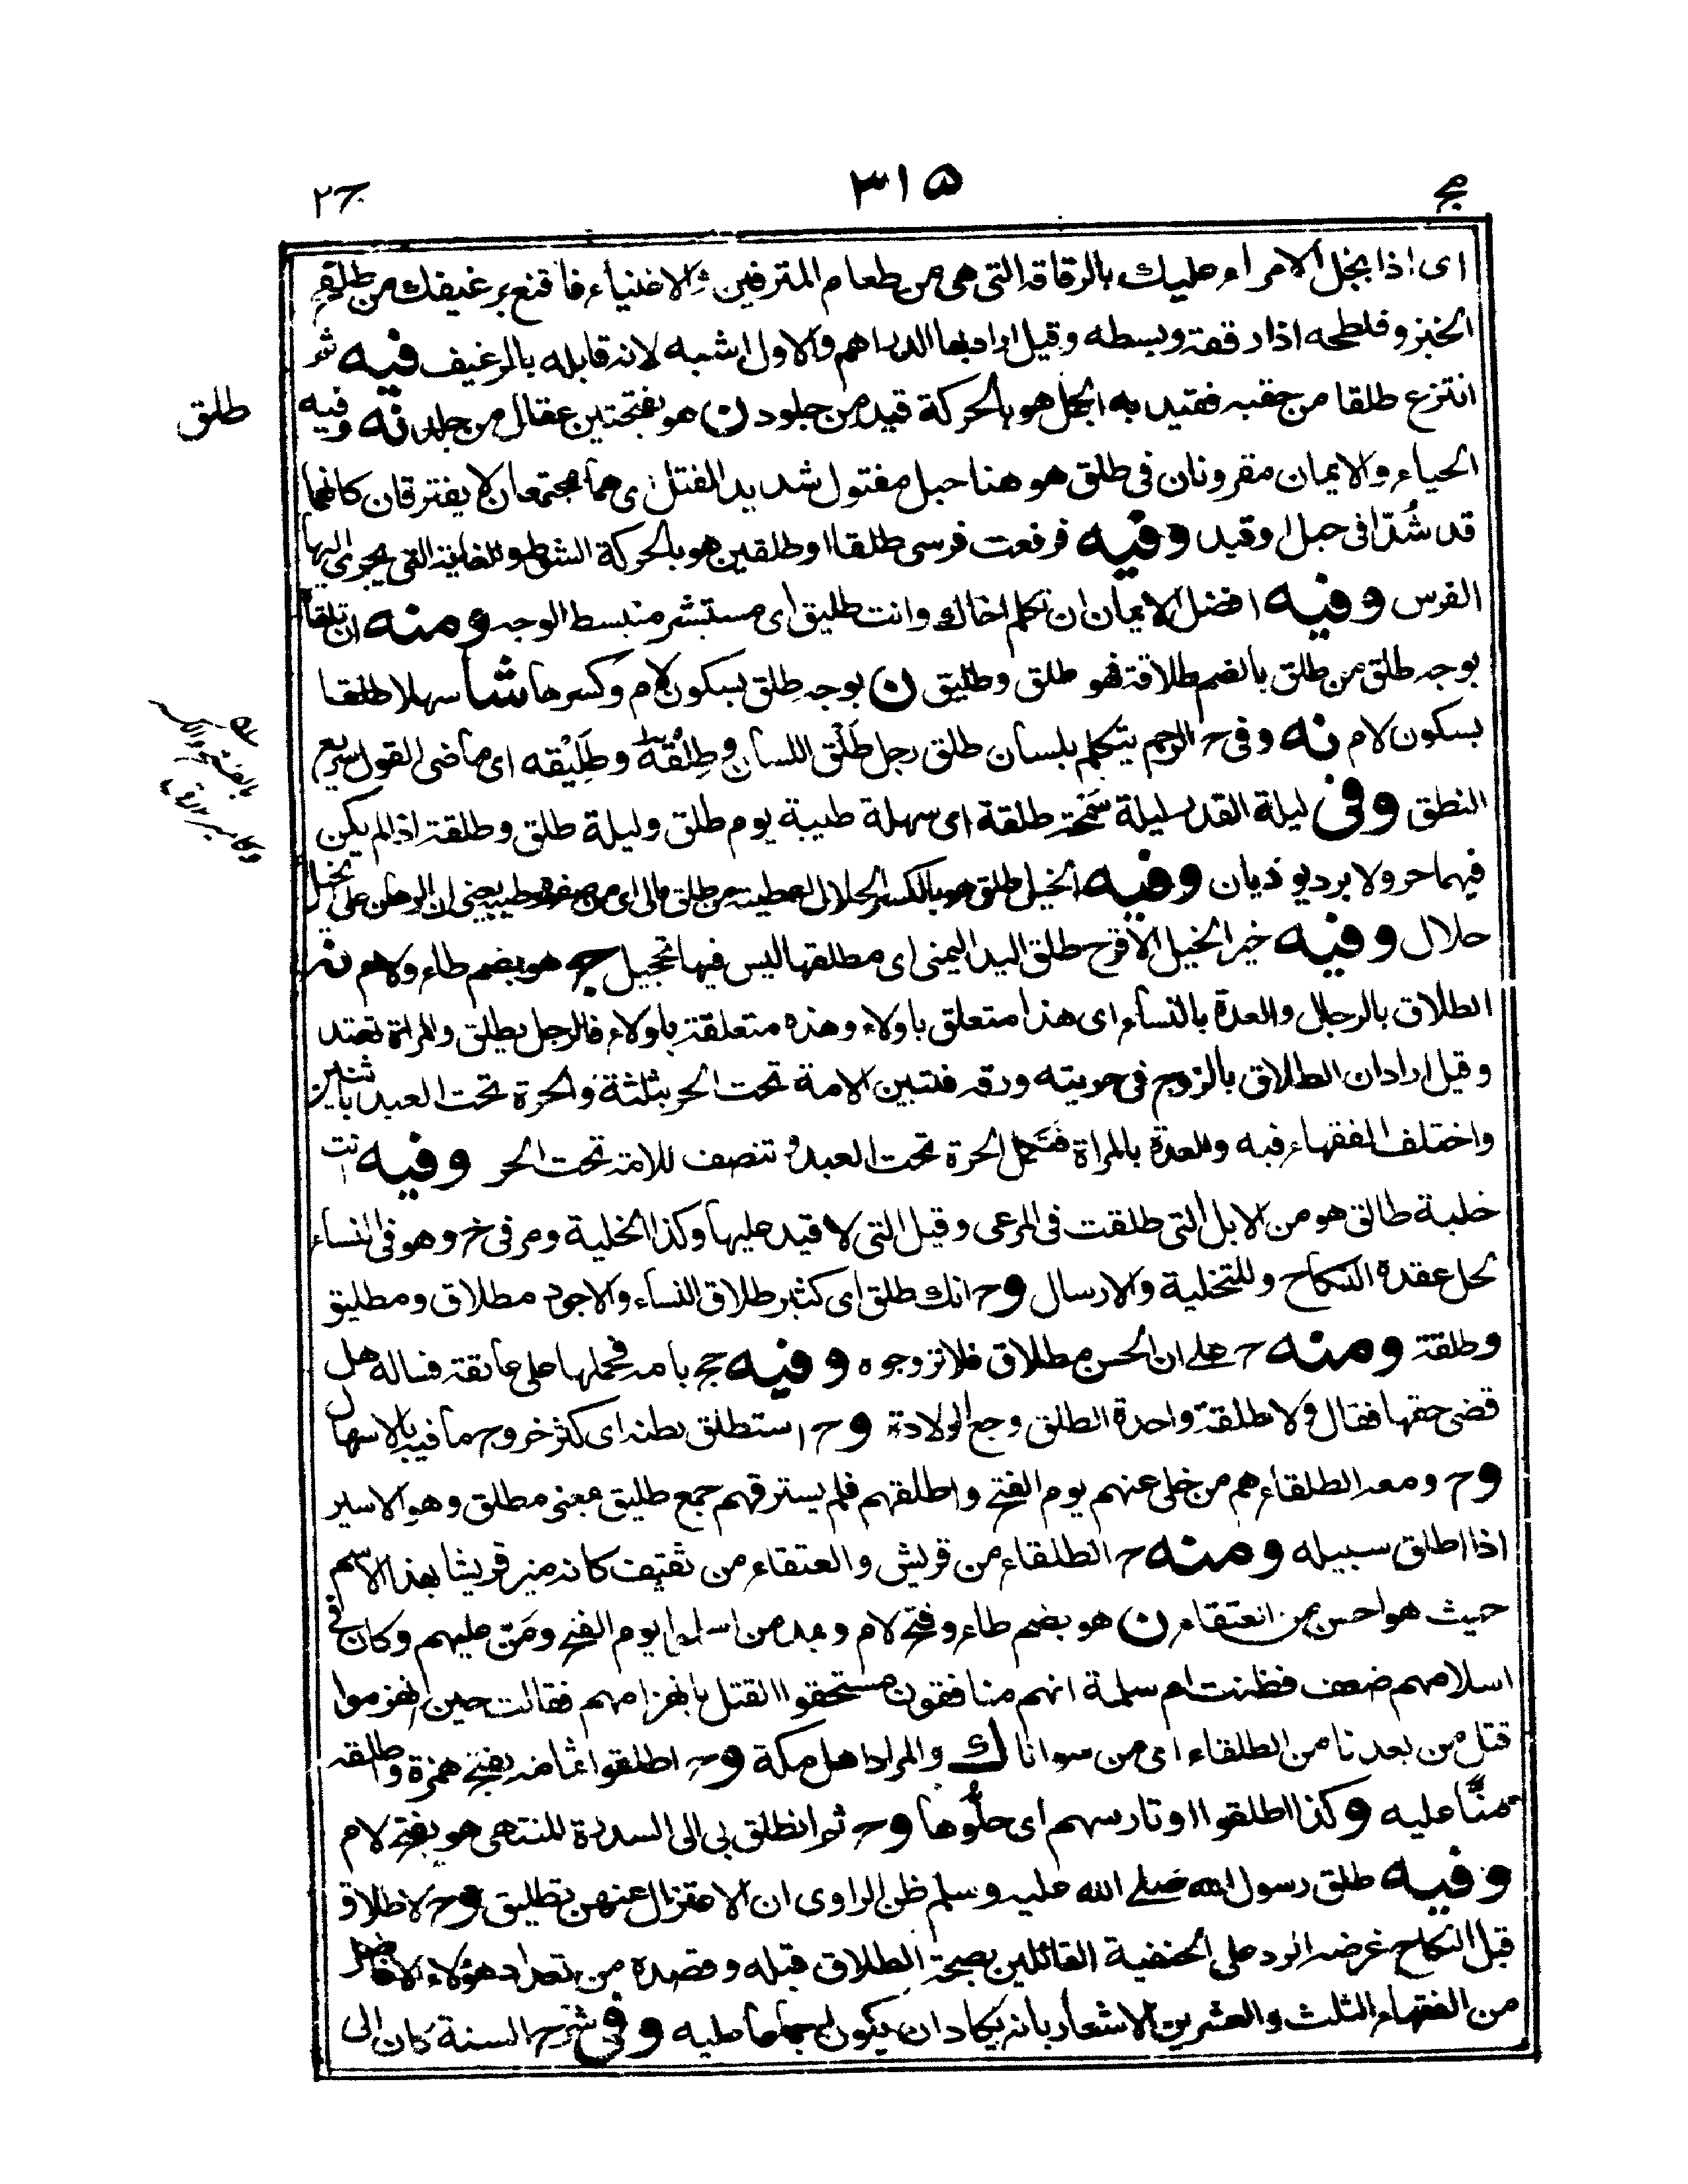 مج ٣١٥ ج٢
اى اذا بخل الامراء عليك بالرقاقة التى هى من طعام المترفين والاغنياء فاقنع برغيفك من طلفح
الخبز وفلطحه اذا رققته وبسطه وقيل اراد بها الدراهم والاول اشبه لانه قابله بالرغيف فيه ثم
طلق
انتزع طلقا من حقبه فقيد به الجمل هو بالحركة قيد من جلود ن هو بفتحتين عقال من جلد نه وفيه
الحياء والايمان مقرونان فى طلق هو هنا حبل مفتول شديد الفتل اى هما مجتمعان لا يفترقان كانهما
قد شُدّا فى حبل او قيد وفيه فرفعت فرسى طلقا او طلقين هو بالحركة الشوط والغاية التى يجرى اليها
الفرس وفيه افضل الايمان ان تكلم اخاك وانت طليق اى مستبشر منبسط الوجه ومنه ان تلقاه
بوجه طلق من طلق بالضم طلاقة فهو طلق وطليق ن بوجه طلق بسكون لام وكسرها شا سهلا طلقا
بسكون لام نه وفى ح الرحم يتكلم بلسان طلق رجل طَلْق اللسان و طِلْقُه وطَلِيْقه اى ماضى القول سريع
النطق وفى ليلة القدر ليلة سَمْحة طلقة اى سهلة طيبة يوم طلق وليلة طلق وطلقة اذا لم يكن
فيهما حر ولا برد يوذيان وفيه الخيل طلق هو بالكسر الحلال اعطيته من طلق مالى اى من صفوه وطيبه يعنى ان الرهان على الخيل
حلال وفيه خير الخيل الاقرح طلق اليد اليمنى اى مطلقها ليس فيها تحجيل ج هو بضم طاء ولام نه
الطلاق بالرجال والعدة بالنساء اى هذا متعلق باولاء وهذه متعلقة باولاء فالرجل يطلق والمراة تعتد
وقيل اراد ان الطلاق بالزوج فى حريته ورقه فتبين الامة تحت الحر بثلثة والحرة تحت العبد باثنتين
واختلف الفقهاء فيه والعدة بالمراة فتكمل الحرة تحت العبد و تنصف للامة تحت الحر وفيه انت
خلية طالق هو من الابل التى طلقت فى المرعى وقيل التى لا قيد عليها وكذا الخلية ومر فى خ وهو فى النساء
لحل عقدة النكاح وللتخلية والارسال وح انك طلق اى كثير طلاق النساء والاجود مطلاق ومطليق
وطلقة ومنه ح على ان الحسن مطلاق فلا تزوجوه وفيه حج بامه فحملها على عاتقه فساله هل
قضى حقها فقال ولا طلقة واحدة الطلق وجع الولادة وح استطلق بطنه اى كثر خروج ما فيه بالاسهال
وح ومعه الطلقاء هم من خلى عنهم يوم الفتح واطلقهم فلم يسترقهم جمع طليق بمعنى مطلق وهو الاسير
اذا اطلق سبيله ومنه ح الطلقاء من قريش والعتقاء من ثقيف كانه ميز قريشا بهذا الاسم
حيث هو احسن من العتقاء ن هو بضم طاء وفتح لام ومد من اسلموا يوم الفتح ومَنّ عليهم وكان فى
اسلامهم ضعف فظنت ام سلمة انهم منافقون مستحقوا القتل بانهزامهم فقالت حين انهزموا
قتل من بعدنا من الطلقاء اى من سوانا ك والمراد اهل مكة وح اطلقوا ثمامة بفتح همزة واطلقه
منّا عليه وكذا اطلقوا اوتارسهم اى حلّوها وح ثم انطلق بى الى السدرة للمنتهى هو بفتح لام
وفيه طلق رسول الله صلى الله عليه وسلم ظن الراوى ان الاعتزال عنهن تطليق وح لا طلاق
قبل النكاح غرضه الرد على الحنفية القائلين بصحة الطلاق قبله وقصده من تعداد هؤلاء الافاضل
من الفقهاء الثلث والعشرين الاشعار بانه يكاد ان يكون اجماعا عليه وفى شرح السنة كان الى